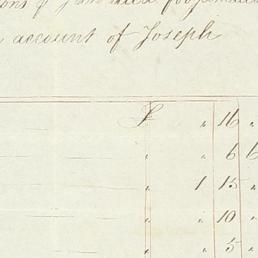 account of Joseph
£ " 16 "
" " 6 6
" 1 15 "
" " 10 "
" " 5 "